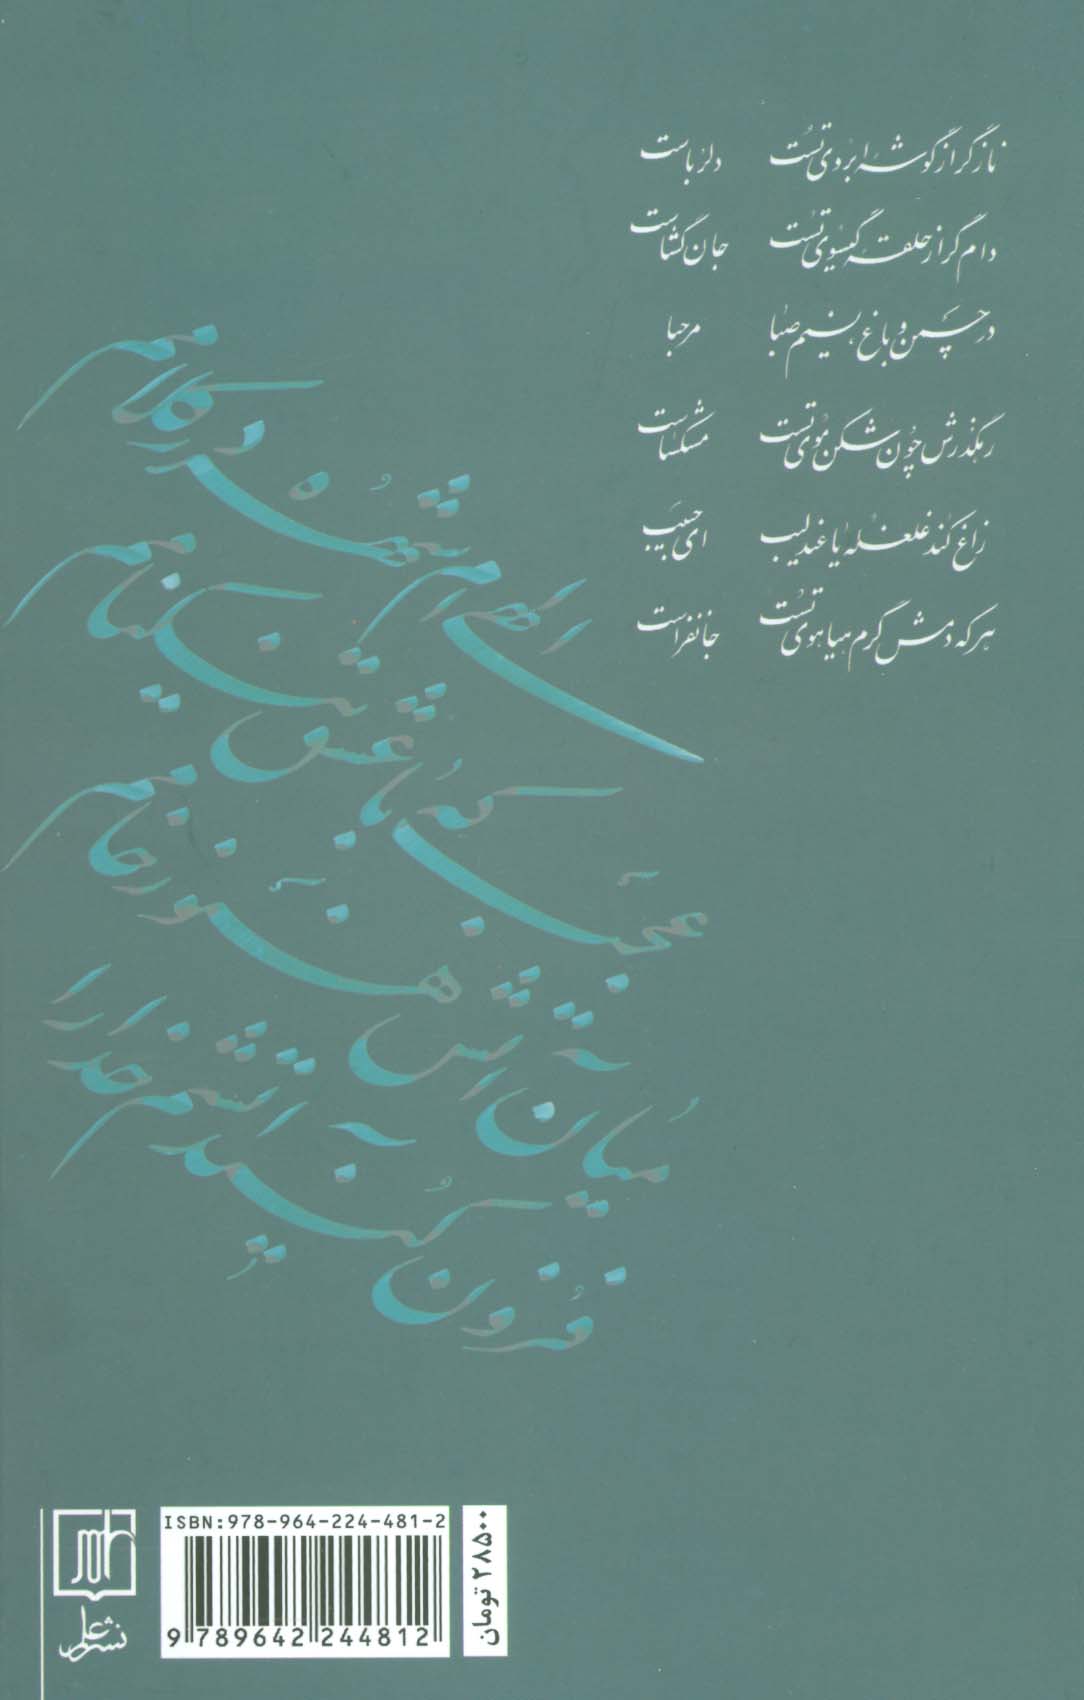 ناز گر از گوشه ابروی تست دلرباست
دام گر از حلقه گیسوی تست جان گشاست
در چمن و باغ، نسیم صبا مرحبا
رهگذرش چون شکن موی تست مشکساست
زاغ کند غلغله یا عندلیب ای حبیب
هر که دمش گرم هیاهوی تست جانفزاست
شده در کلامم
عجب که با عشق
هنوز خامم
میان آتش
فزون کنید آتشم خدا را
ISBN:978-964-224-481-2
9 789642 244812
۲۸۵۰۰ تومان
نشر علم